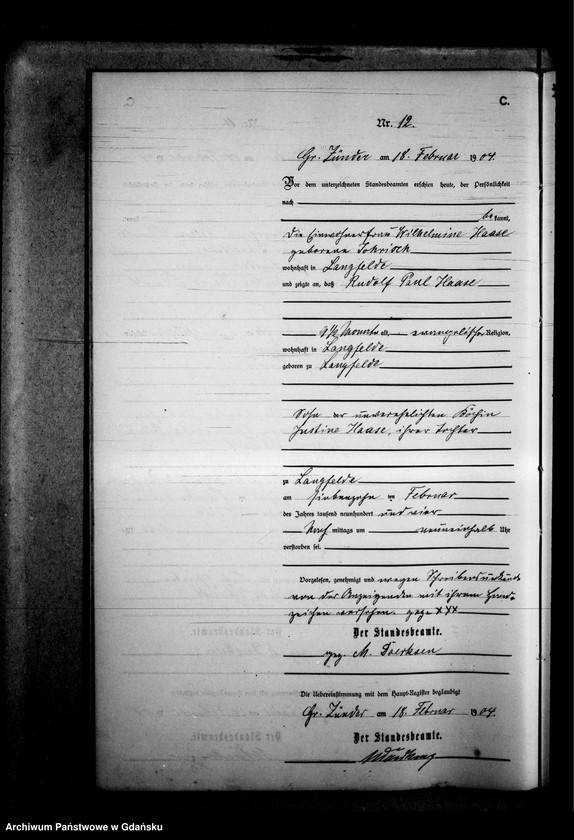 C.
Nr. 12.
Gr. Zünder am 18. Februar 1904.
Vor dem unterzeichneten Standesbeamten erschien heute, der Persönlichkeit
nach
bekannt,
die Einwohnerfrau Wilhelmine Haase
geborene
wohnhaft in Langfelde
und zeigte an, daß Rudolf Paul Haase
9 1/2 Monate alt, evangelischer Religion,
wohnhaft in Langfelde
geboren zu Langfelde
Sohn der unverehelichten Köchin
Justine Haase, ihrer Tochter
zu Langfelde
am siebenzehn ten Februar
des Jahres tausend neunhundert und vier
Nach mittags um neuneinhalb Uhr
verstorben sei.
Vorgelesen, genehmigt und wegen Schreibensunkunde
von der Anzeigenden mit ihrem Hand-
zeichen versehen. gez. XXX
Der Standesbeamte.
gez. M. Doerksen
Die Uebereinstimmung mit dem Haupt-Register beglaubigt
Gr. Zünder am 18. Februar 1904.
Der Standesbeamte.
Archiwum Państwowe w Gdańsku